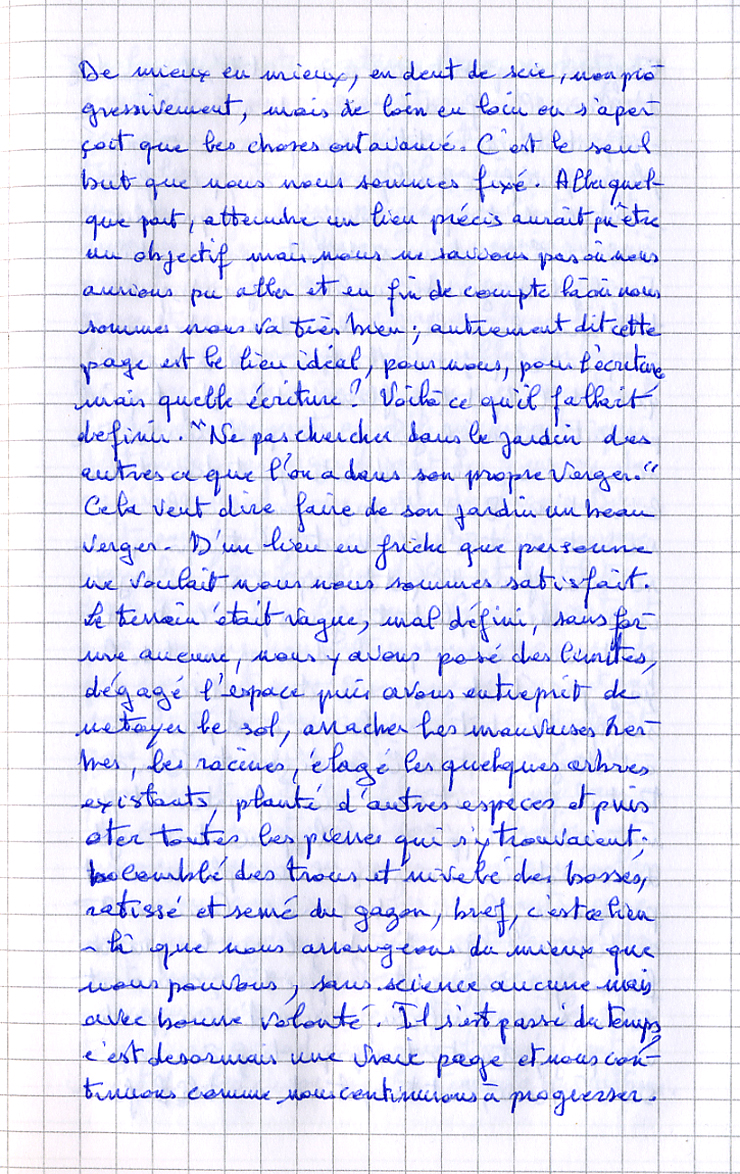 De mieux en mieux, en dent de scie, non pro-
gressivement, mais de loin en loin on s'aper-
çoit que les choses ont avancé. C'est le seul
but que nous nous sommes fixé. Aller quel-
que part, atteindre un lieu précis aurait pu être
un objectif mais nous ne savions pas où nous
aurions pu aller et en fin de compte là où nous
sommes nous va très bien ; autrement dit cette
page est le lieu idéal, pour nous, pour l'écriture,
mais quelle écriture ? Voilà ce qu'il fallait
definir. "Ne pas chercher dans le jardin des
autres ce que l'on a dans son propre verger."
Cela veut dire faire de son jardin un beau
verger. D'un lieu en friche que personne
ne voulait nous nous sommes satisfait.
Le terrain était vague, mal défini, sans for-
me aucune, nous y avons posé des limites,
dégagé l'espace puis avons entreprit de
netoyer le sol, arracher les mauvaises her-
bes, les racines, élagé les quelques arbres
existants, planté d'autres espèces et puis
oter toutes les pierres qui s'y trouvaient ;
comblé des trous et nivelé des bosses,
ratissé et semé du gazon, bref, c'est ce lieu
- là que nous arrangeons du mieux que
nous pouvons, sans science aucune mais
avec bonne volonté. Il s'est passé du temps,
c'est desormais une vraie page et nous con-
tinuons comme nous continuons à progresser.